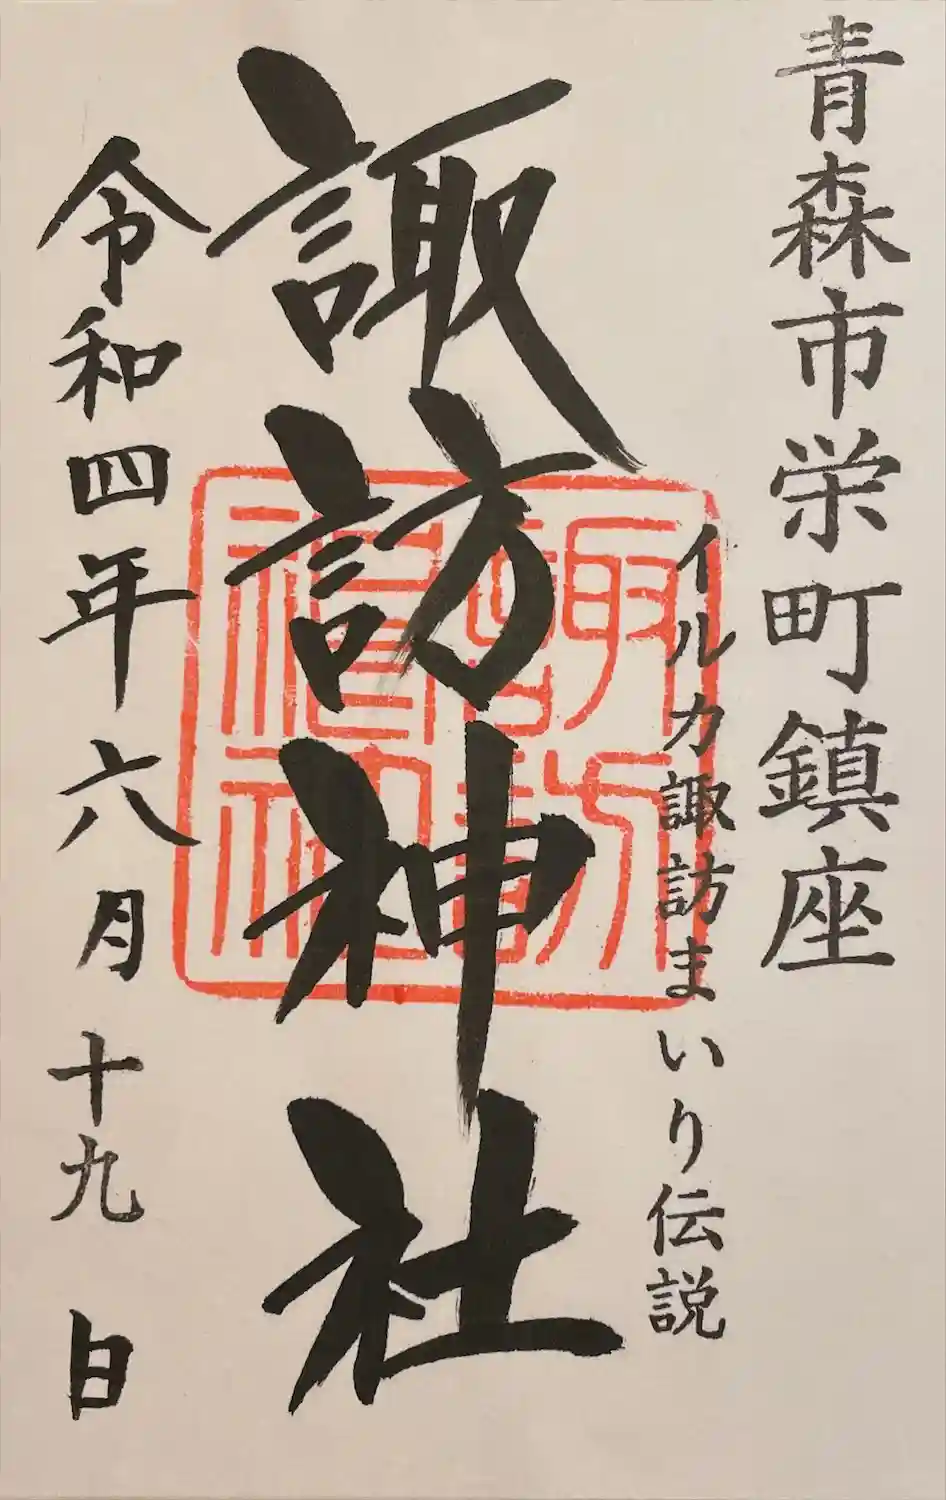 青森市栄町鎮座
イルカ諏訪まいり伝説
諏訪神社
令和四年六月十九日
諏訪
神社